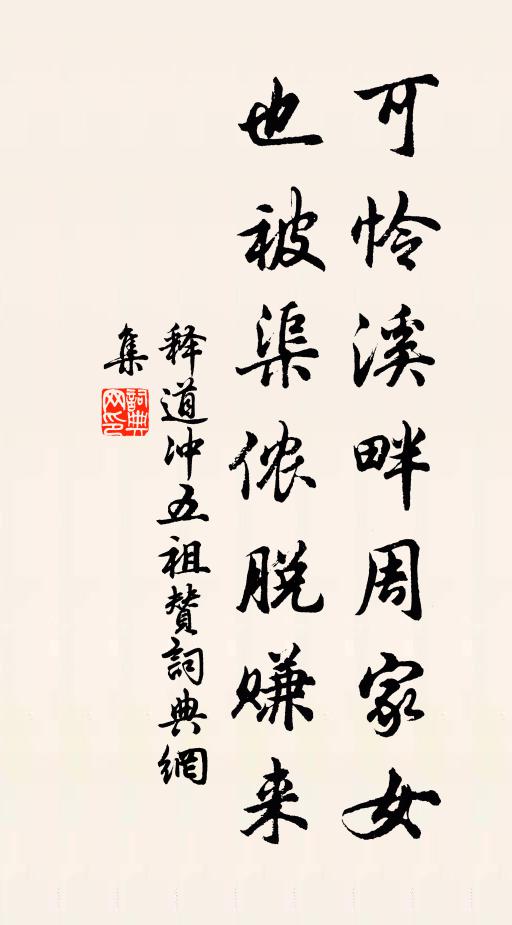 可怜溪畔周家女
也被渠侬脱赚来
释道冲五祖赞詞典網
集
詞典网印